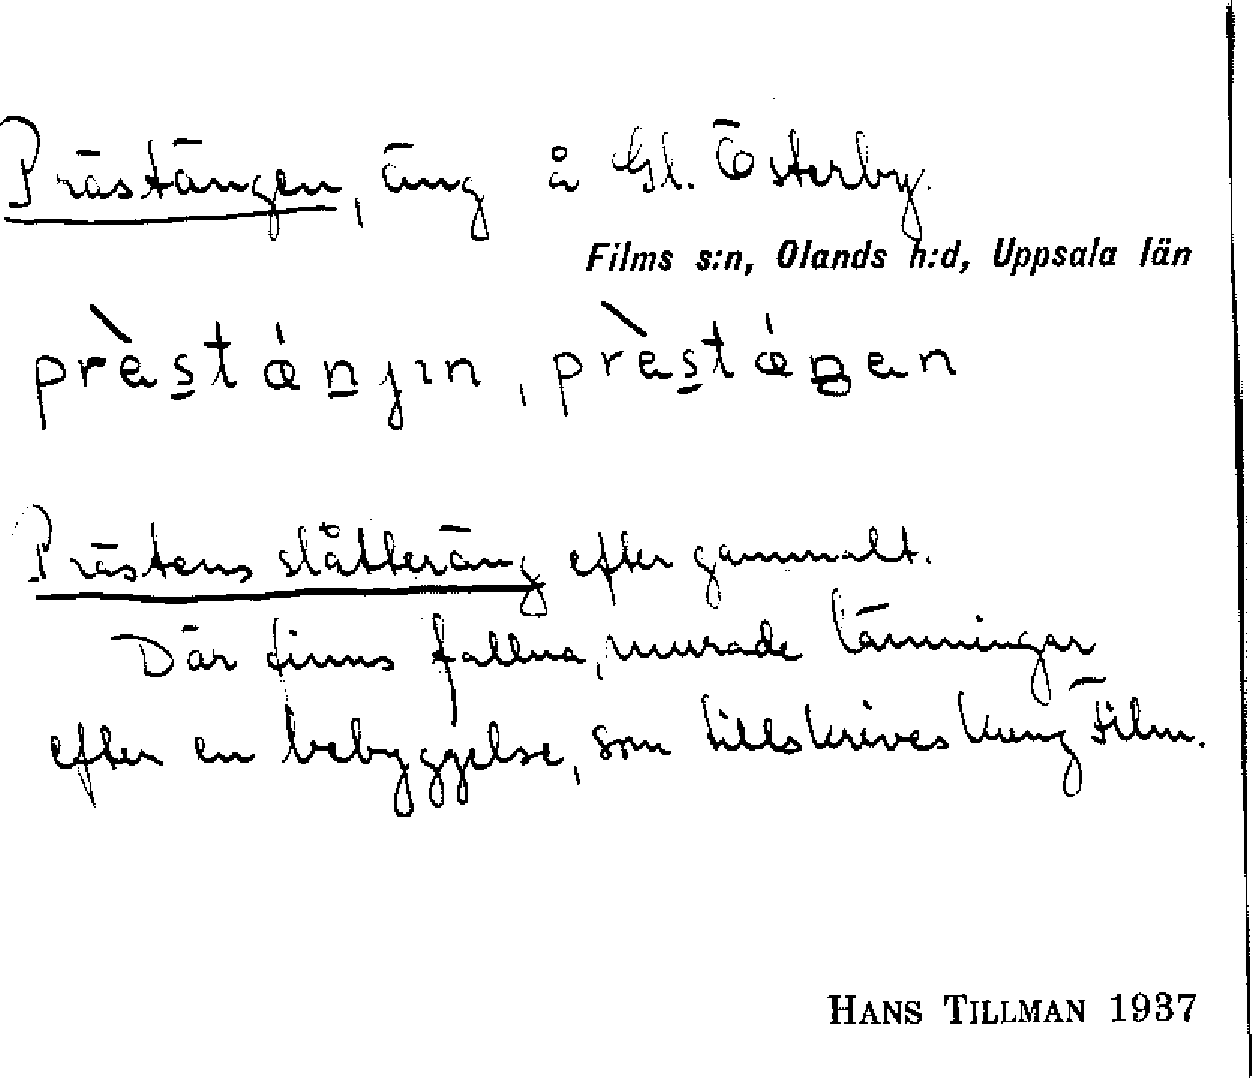 Prästängen, äng å Gl. Österby.
Films s:n, Olands h:d, Uppsala län
prèstǽnjın, prèstǽŋen
Prästens slåtteräng efter gammalt.
Där finns fallna, murade lämningar
efter en bebyggelse, som tillskrives kung Film.
HANS TILLMAN 1937